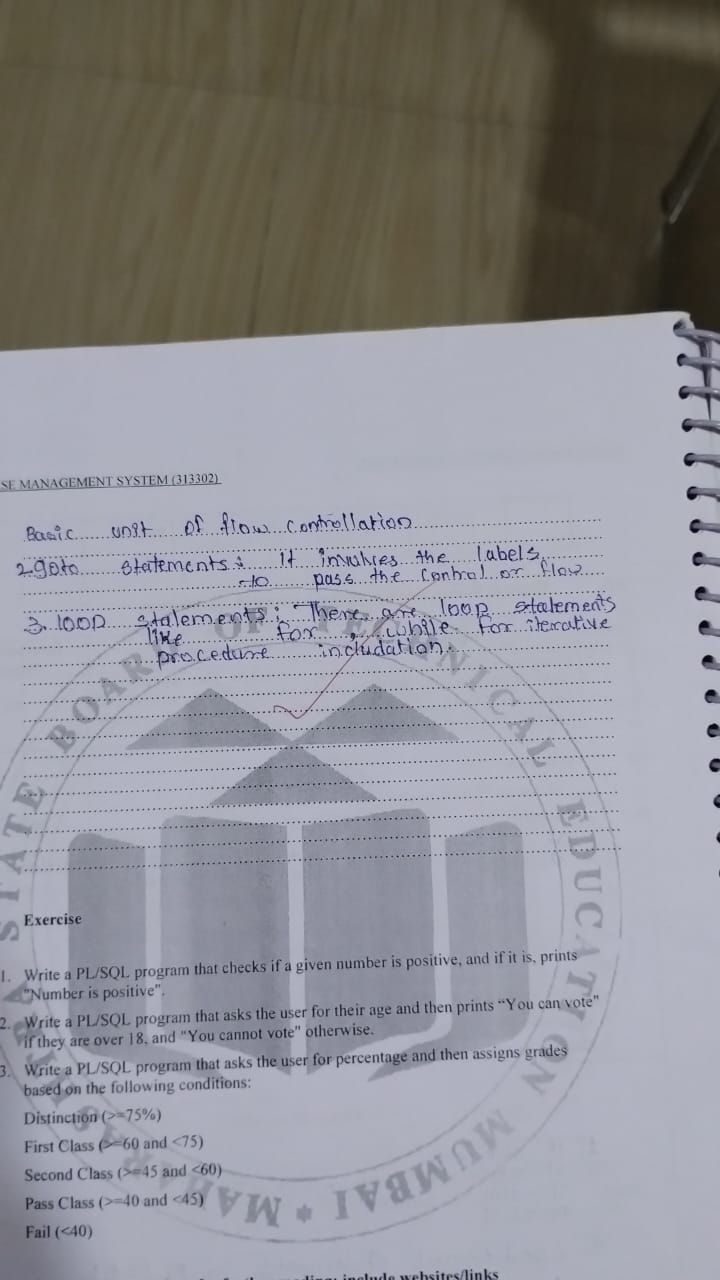 SE MANAGEMENT SYSTEM (313302)
Basic unit of flow controllation
2 goto statements: It involves the labels
to pass the control or flow
3. loop statements: There are loop statements
like for, while for iterative
procedure includation.
STATE BOARD OF TECHNICAL EDUCATION MUMBAI * MAHARASHTRA
Exercise
1. Write a PL/SQL program that checks if a given number is positive, and if it is, prints
"Number is positive".
2. Write a PL/SQL program that asks the user for their age and then prints “You can vote"
if they are over 18, and "You cannot vote" otherwise.
3. Write a PL/SQL program that asks the user for percentage and then assigns grades
based on the following conditions:
Distinction (>=75%)
First Class (>=60 and <75)
Second Class (>=45 and <60)
Pass Class (>=40 and <45)
Fail (<40)
include websites/links